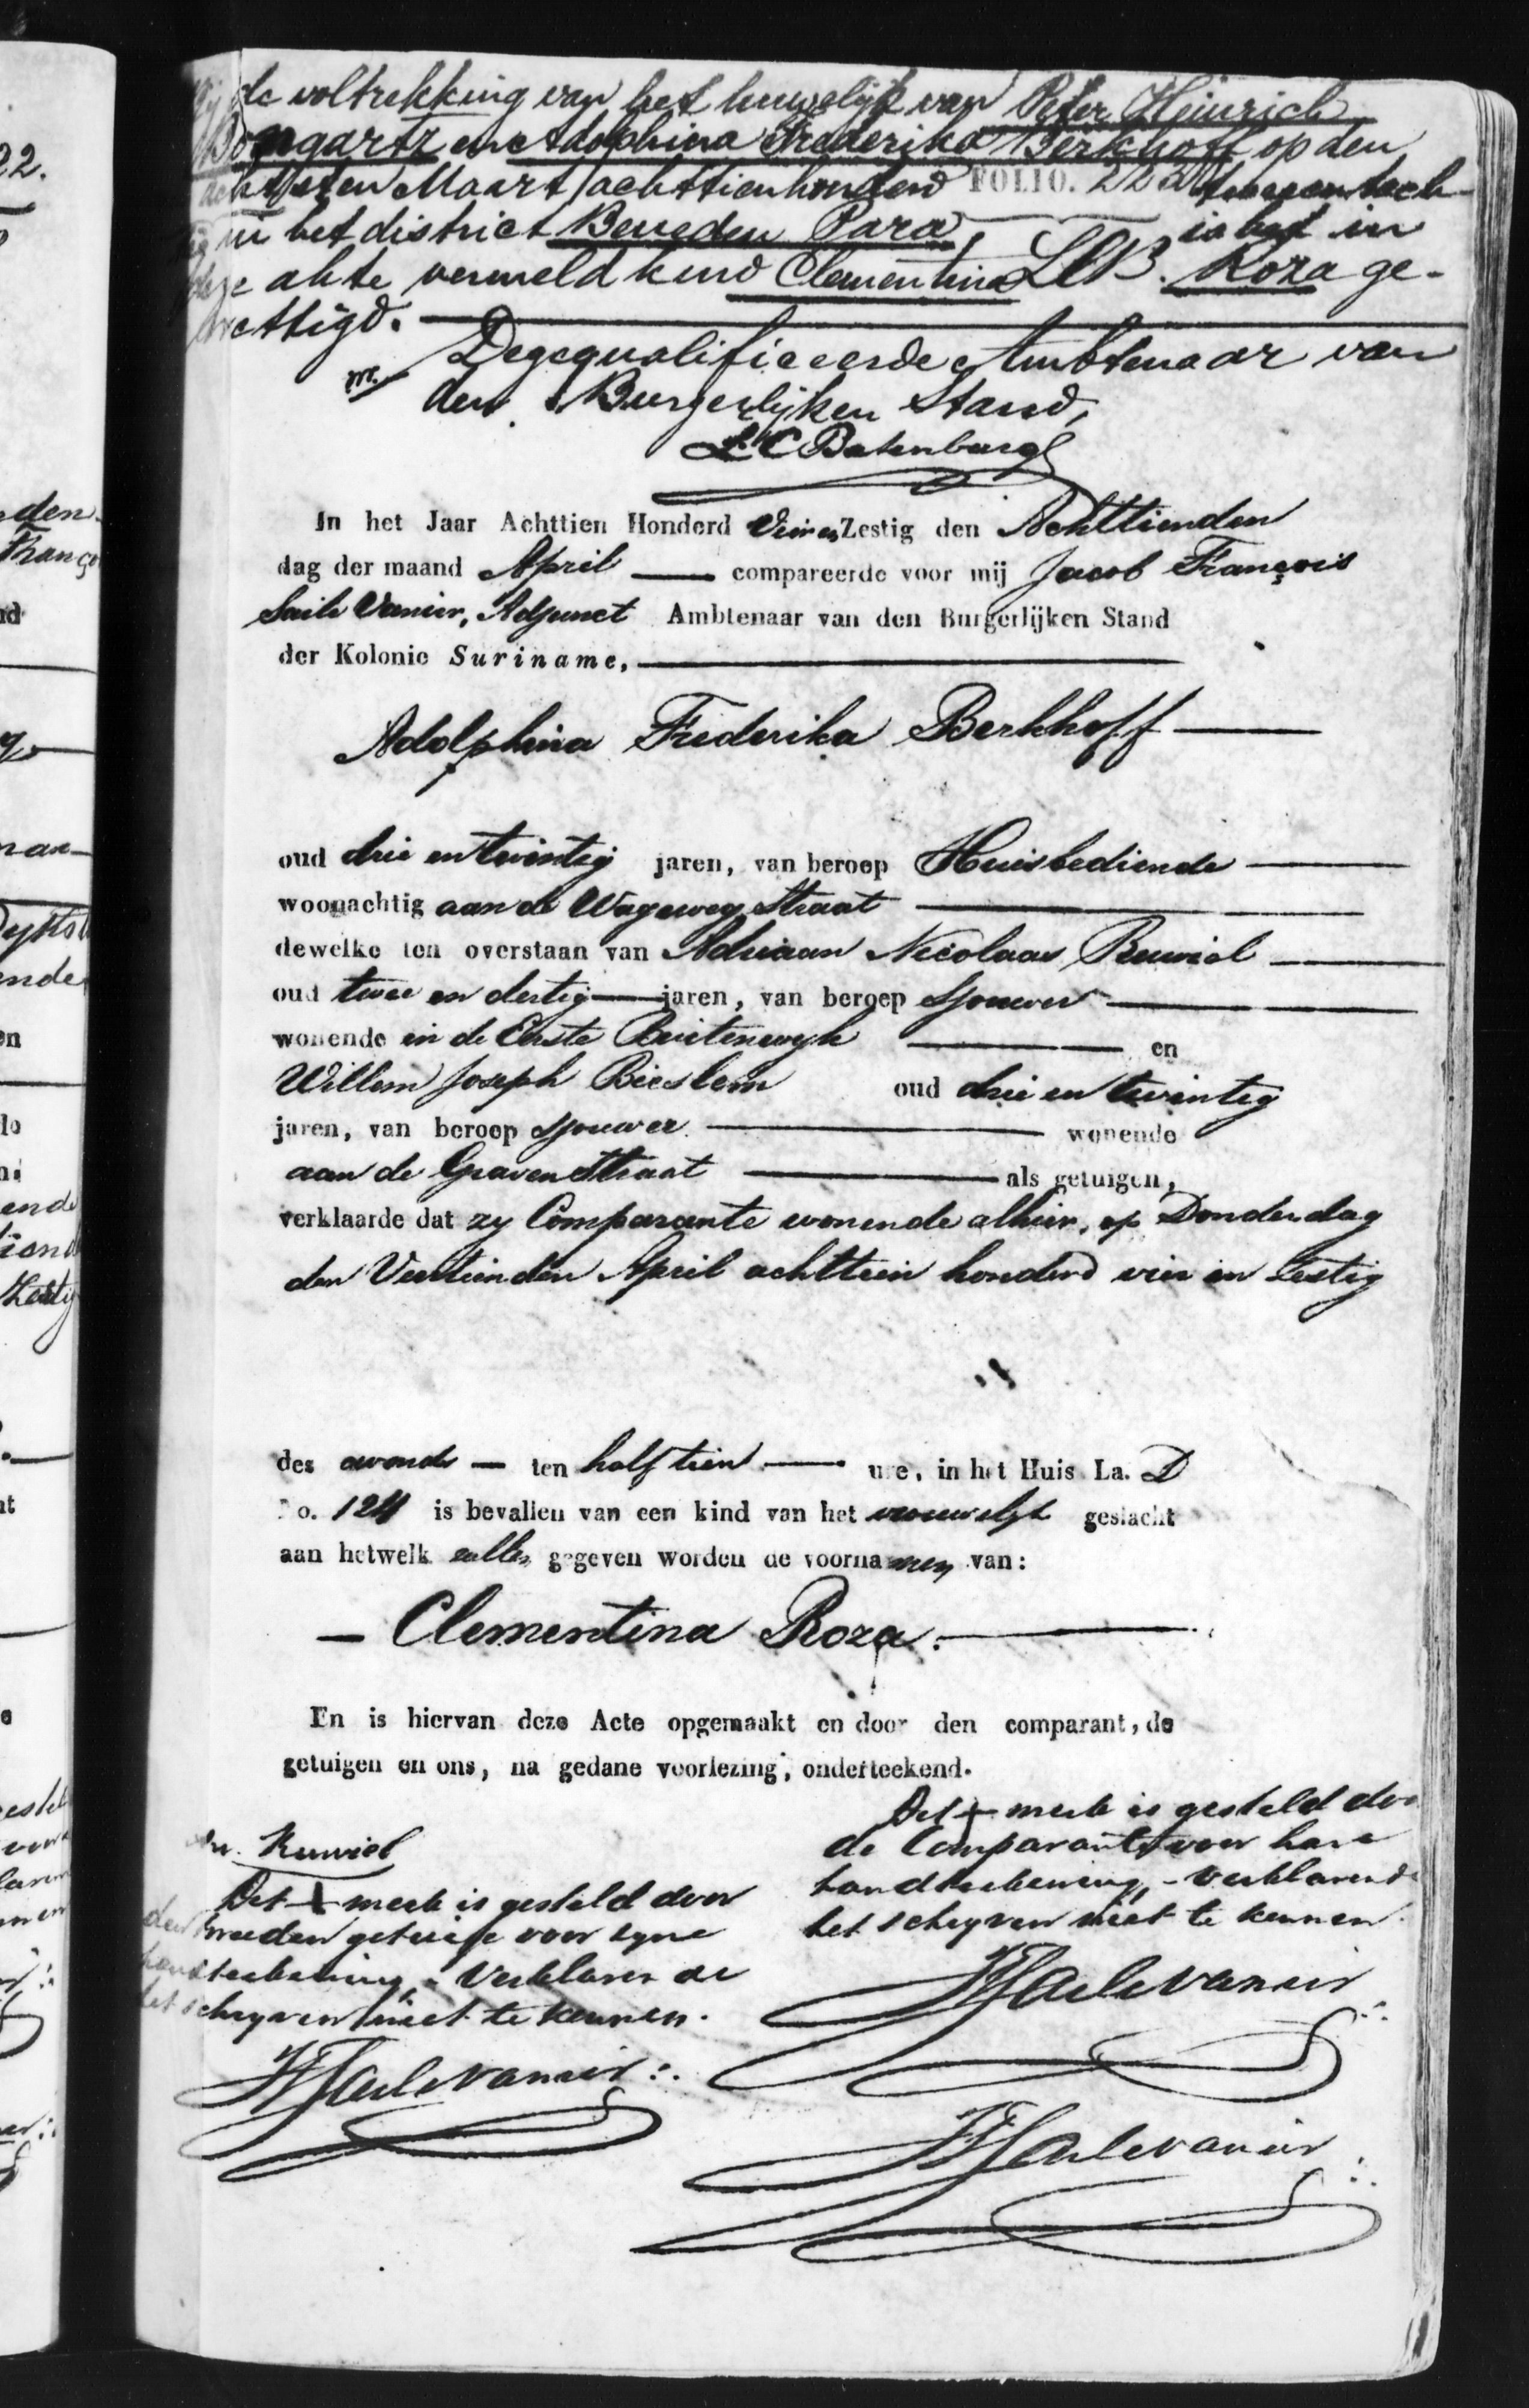 Bij de voltrekking van het huwelijk van Peter Heinrich
Bongartz en Adolphina Frederika Berkhoff op den
achtsten Maart achttienhonderd FOLIO. 223 twee en tach-
tig in het district Beneden Para, is het in
deze akte vermeld kind Clementina LCB. Roza ge-
wettigd.
De gequalificeerde Ambtenaar van
den Burgerlijken Stand,
L C Batenburg
In het Jaar Achttien Honderd Vier en Zestig den Achttienden
dag der maand April compareerde voor mij Jacob François
Saile Vanier, Adjunct Ambtenaar van den Burgerlijken Stand
der Kolonie Suriname,
Adolphina Frederika Berkhoff
oud drie en twintig jaren, van beroep Huisbediende
woonachtig aan de Wageweg Straat
dewelke ten overstaan van Adriaan Nicolaas Ruwiel
oud twee en dertig jaren, van beroep Sjouwer
wonende in de Eerste Buitenwyk en
Willem Joseph oud drie en twintig
jaren, van beroep Sjouwer wonende
aan de Gravenstraat als getuigen,
verklaarde dat zy Comparante wonende alhier, op Donderdag
den Veertienden April achttien honderd vier en Zestig
des avonds ten half tien ure, in het Huis La. D
No. 124 is bevallen van een kind van het vrouwelyk geslacht
aan hetwelk zullen gegeven worden de voornamen van:
Clementina Roza.
En is hiervan deze Acte opgemaakt en door den comparant, de
getuigen en ons, na gedane voorlezing, onderteekend.
Ruwiel
Det + merk is gesteld door
den tweeden getuige voor zyne
handteekening, - Verklarende
het schryven niet te kennen.
JFSailevanier
Det + merk is gesteld door
de Comparante voor hare
handteekening, - verklarende
het schryven niet te kennen.
JFSailevanier
JFSailevanier